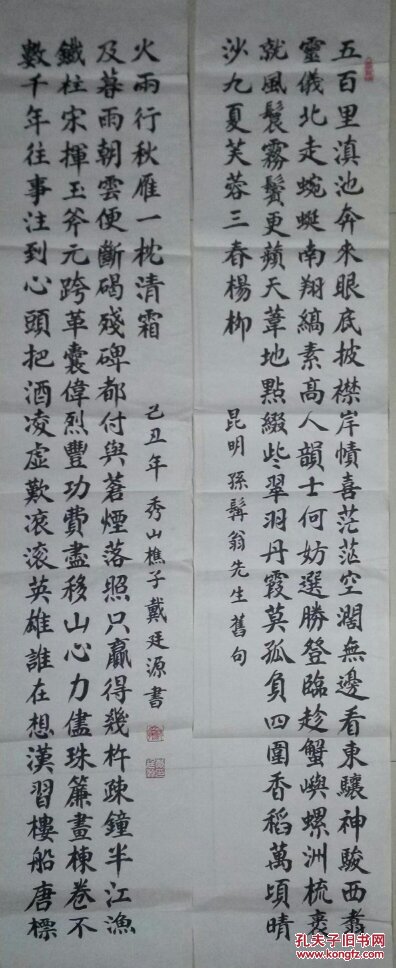 五百里滇池奔來眼底披襟岸幘喜茫茫空闊無邊看東驤神駿西翥
靈儀北走蜿蜒南翔縞素高人韻士何妨選勝登臨趁蟹嶼螺洲梳裹
就風鬟霧鬢更蘋天葦地點綴些翠羽丹霞莫孤負四圍香稻萬頃晴
沙九夏芙蓉三春楊柳
昆明孫髯翁先生舊句
數千年往事注到心頭把酒凌虛歎滾滾英雄誰在想漢習樓船唐標
鐵柱宋揮玉斧元跨革囊偉烈豐功費盡移山心力儘珠簾畫棟卷不
及暮雨朝雲便斷碣殘碑都付與蒼煙落照只贏得幾杵疎鐘半江漁
火兩行秋雁一枕清霜
己丑年秀山樵子戴廷源書
孔夫子旧书网